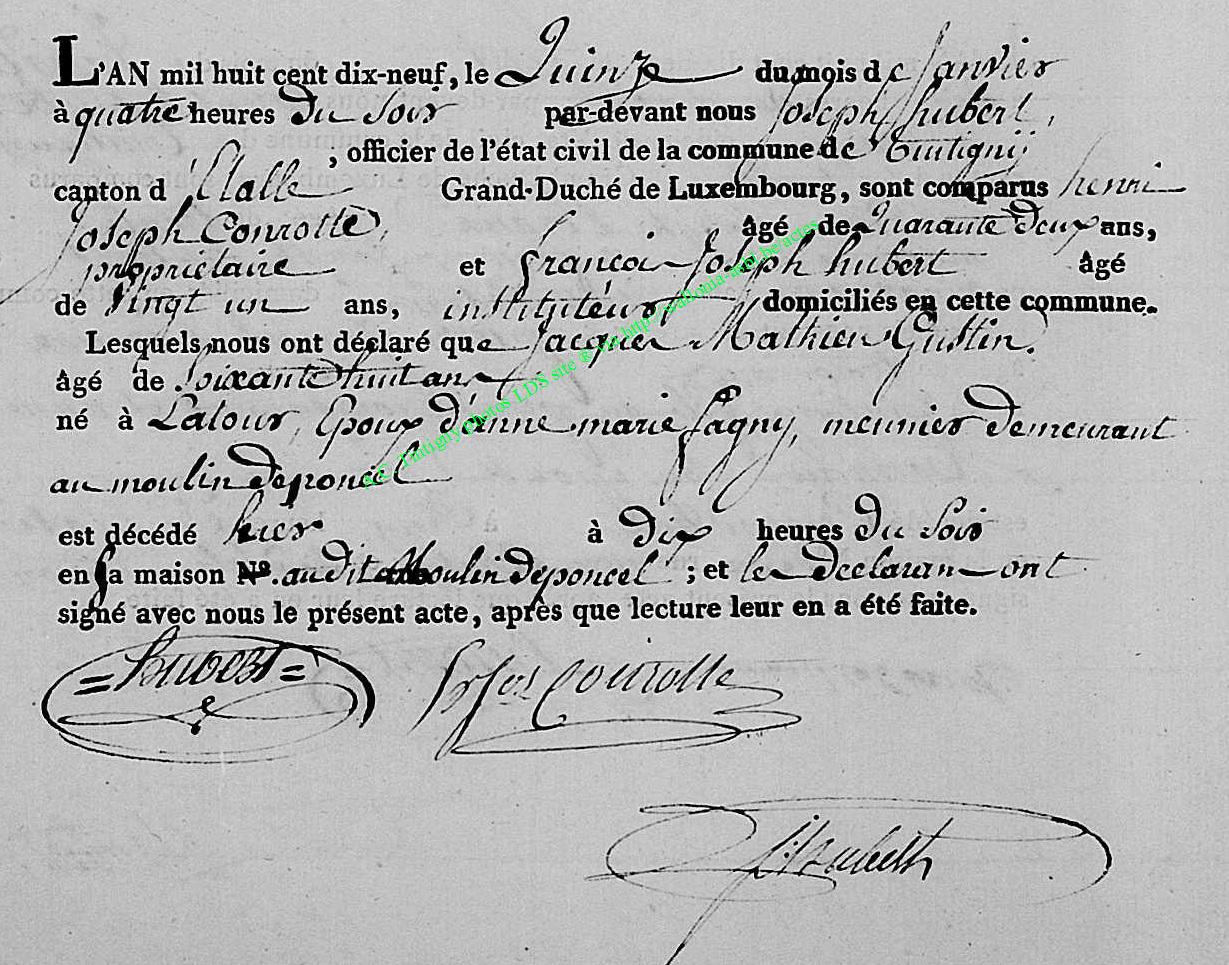 L'AN mil huit cent dix-neuf, le Quinze du mois de Janvier
à quatre heures du soir par-devant nous Joseph hubert,
, officier de l'état civil de la commune de Tintigny
canton d'Etalle Grand-Duché de Luxembourg, sont comparus henri
Joseph Conrotte, âgé de Quarante deux ans,
propriétaire et françois Joseph hubert âgé
de vingt un ans, instituteur domiciliés en cette commune.
Lesquels nous ont déclaré que Jacques Mathieu Guslin.
âgé de Soixante huit ans
né à Latour, Epoux d'anne marie fagny, meunier demeurant
au moulin deponcel
est décédé hier à dix heures du soir
en sa maison N°. audit Moulin deponcel ; et les declarans ont
signé avec nous le présent acte, après que lecture leur en a été faite.
=hubert= h Jos Conrotte
f J hubert
A.C. Tintigny photos LDS site ® via http://wallonia-asbl.be/actes